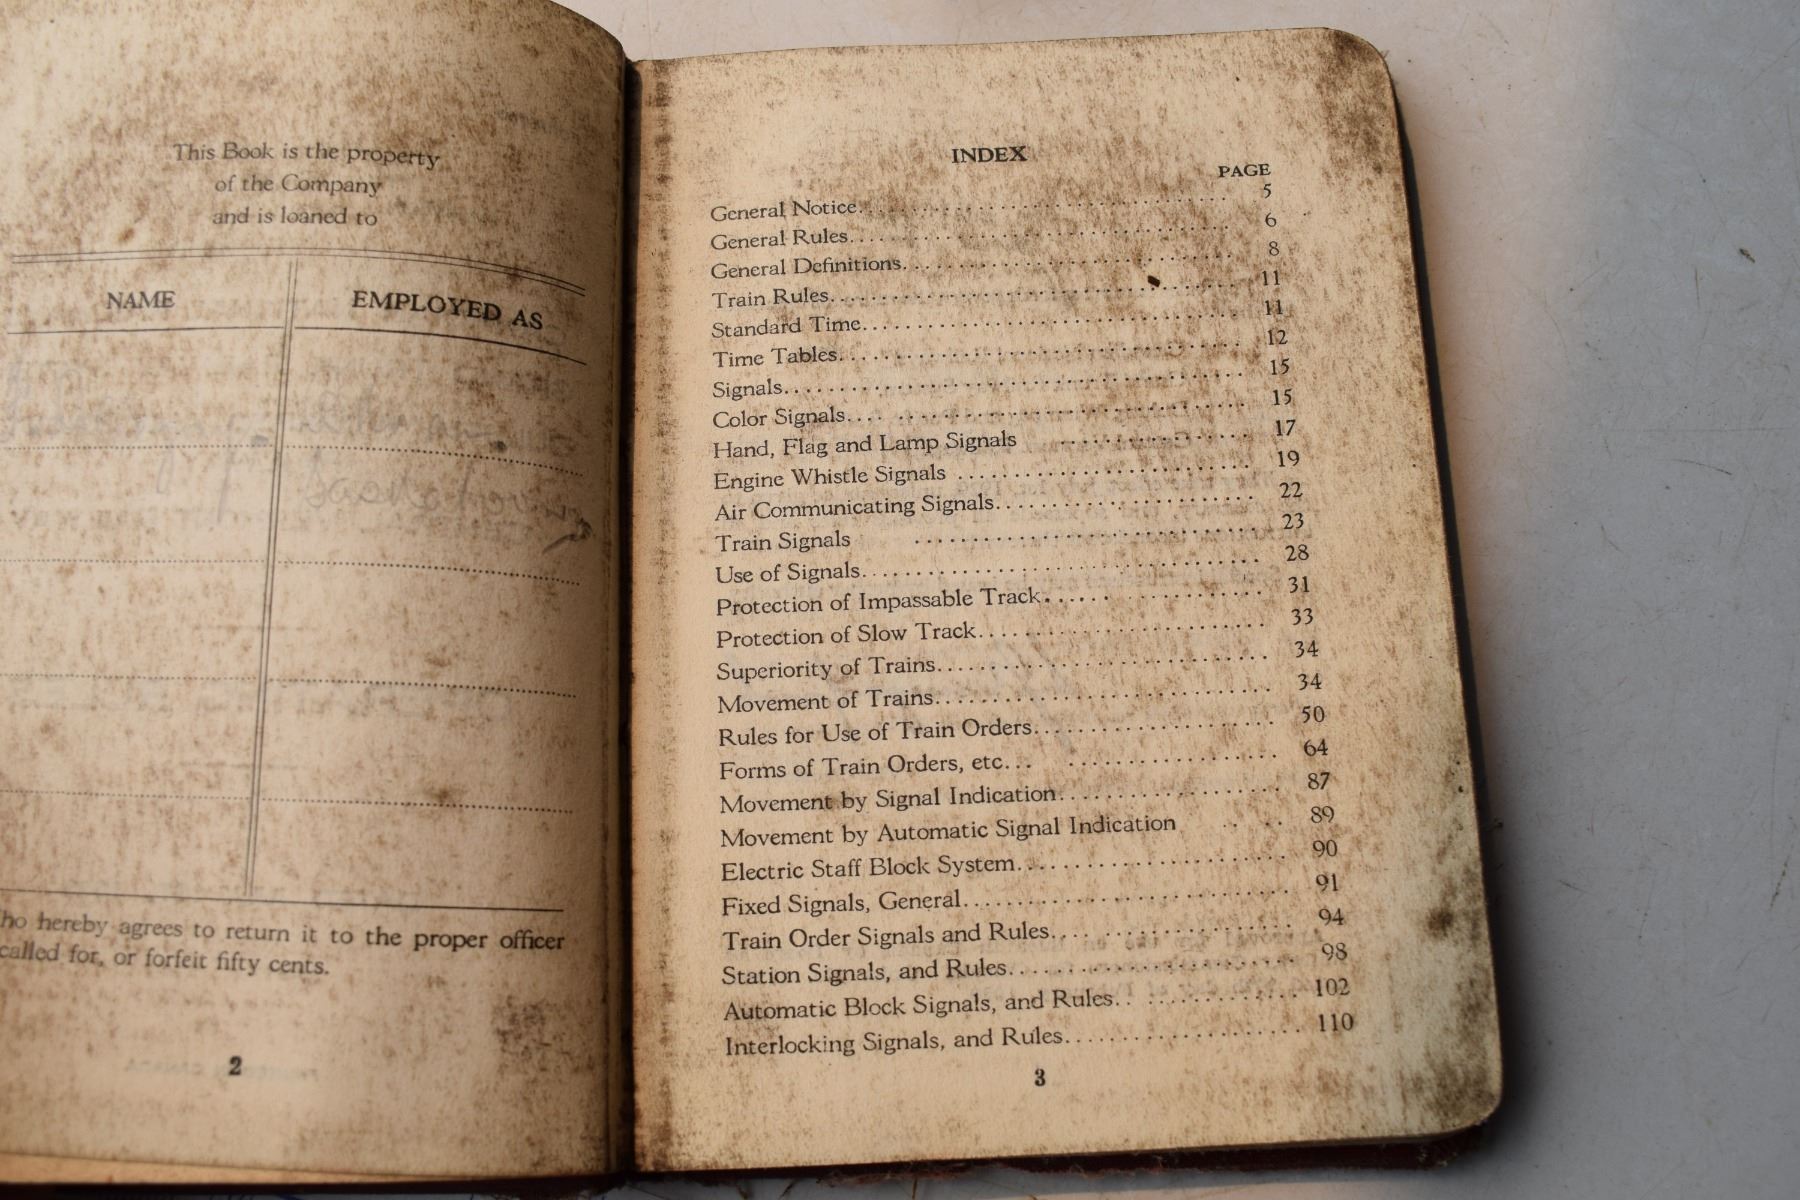 This Book is the property
of the Company
and is loaned to
NAME EMPLOYED AS
ho hereby agrees to return it to the proper officer
called for, or forfeit fifty cents.
2
INDEX
PAGE
General Notice 5
General Rules 6
General Definitions 8
Train Rules 11
Standard Time 11
Time Tables 12
Signals 15
Color Signals 15
Hand, Flag and Lamp Signals 17
Engine Whistle Signals 19
Air Communicating Signals 22
Train Signals 23
Use of Signals 28
Protection of Impassable Track 31
Protection of Slow Track 33
Superiority of Trains 34
Movement of Trains 34
Rules for Use of Train Orders 50
Forms of Train Orders, etc. 64
Movement by Signal Indication 87
Movement by Automatic Signal Indication 89
Electric Staff Block System 90
Fixed Signals, General 91
Train Order Signals and Rules 94
Station Signals, and Rules 98
Automatic Block Signals, and Rules 102
Interlocking Signals, and Rules 110
3